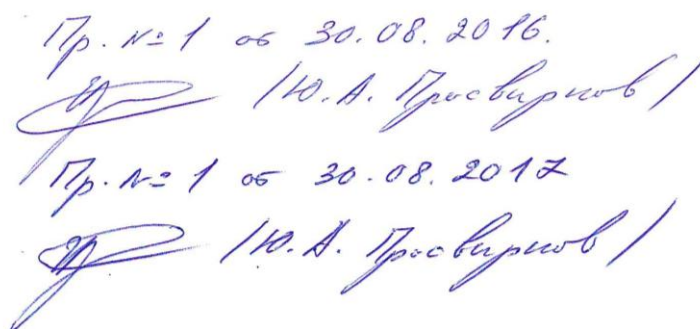 Пр. №1 от 30.08.2016.
/Ю.А. Просвирнов/
Пр. №1 от 30.08.2017
/Ю.А. Просвирнов/